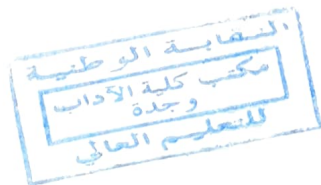 النقابة الوطنية
مكتب كلية الآداب
وجدة
للتعليم العالي